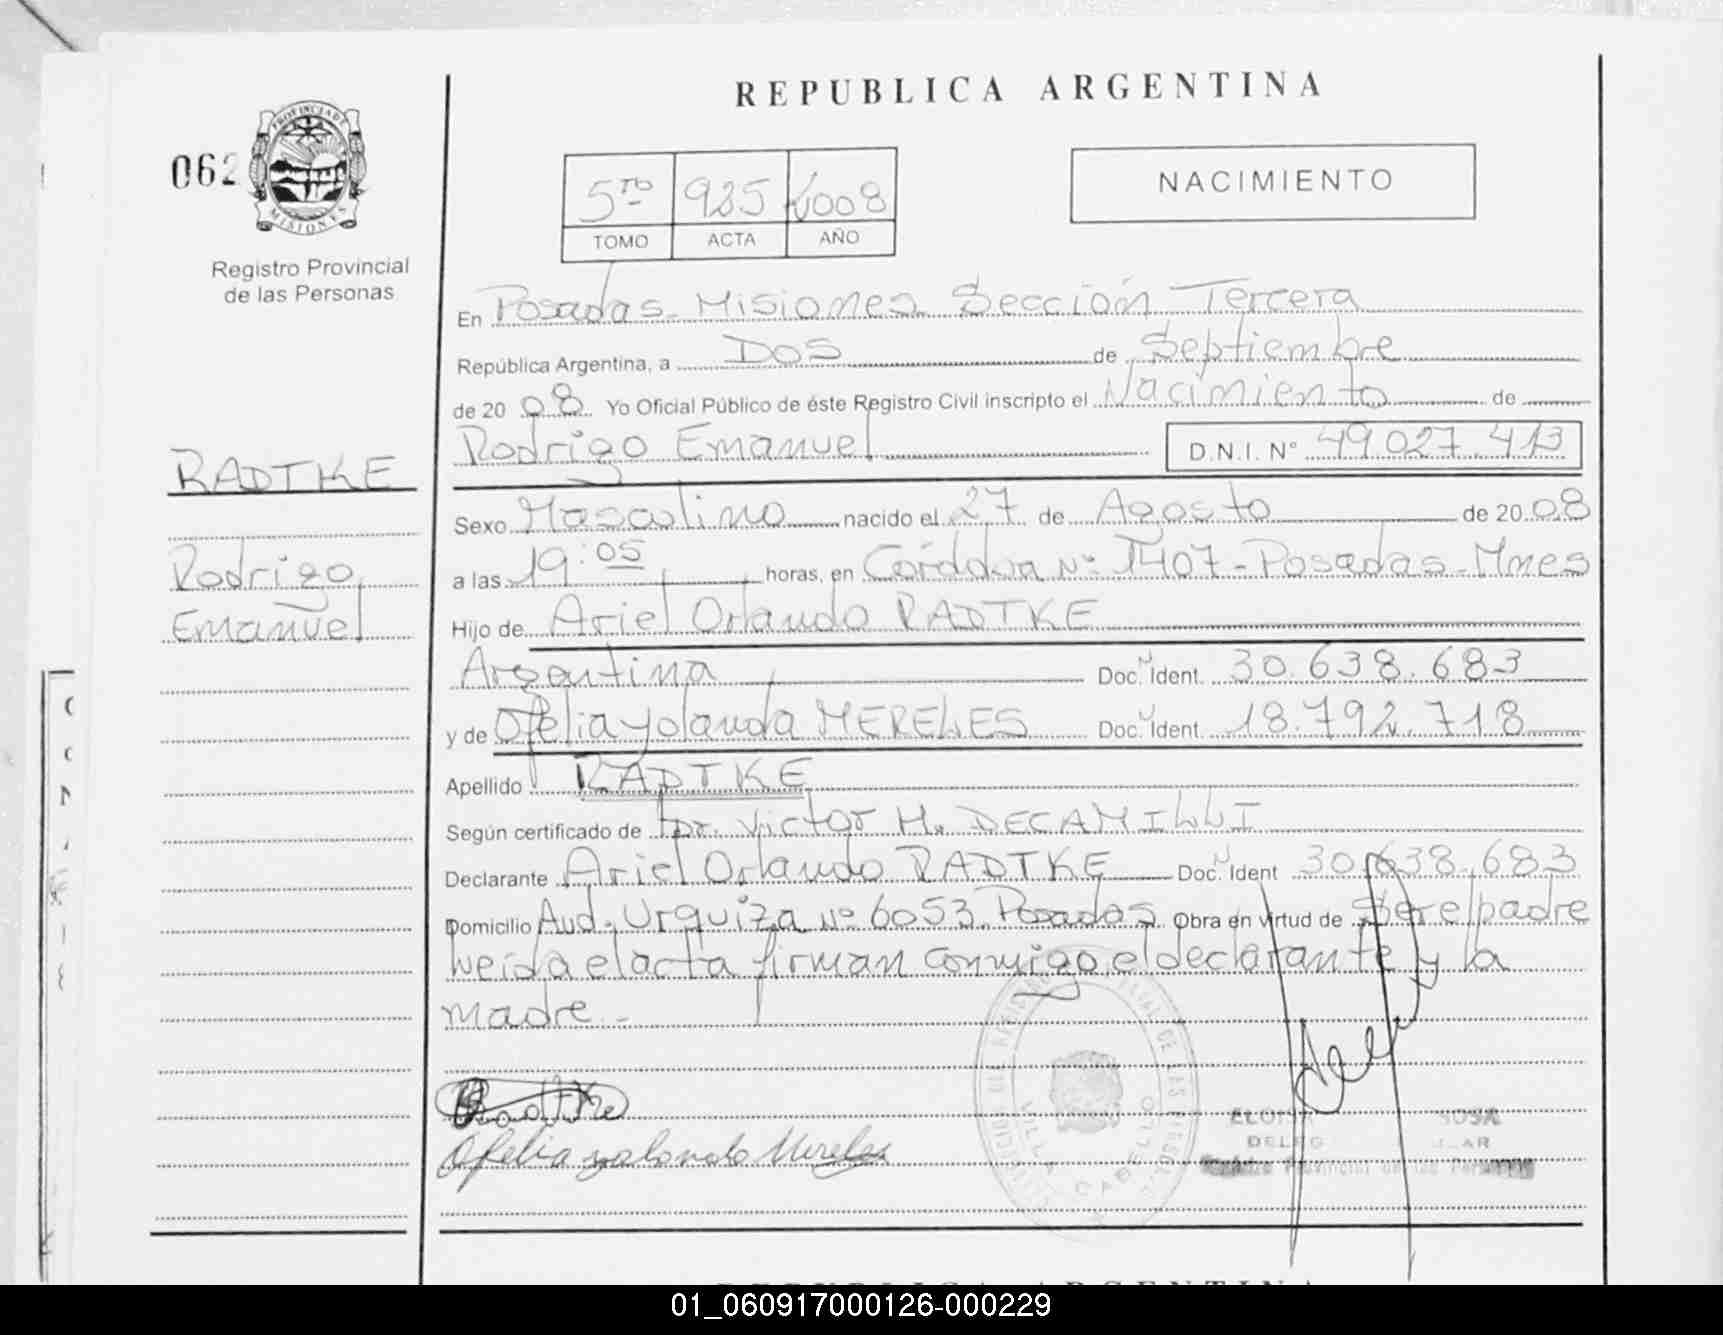 REPUBLICA ARGENTINA
062
PROVINCIA DE
MISIONES
Registro Provincial
de las Personas
5to 925 2008
TOMO ACTA AÑO
NACIMIENTO
En Posadas - Misiones Sección Tercera
República Argentina, a Dos de Septiembre
de 20 08 Yo Oficial Público de éste Registro Civil inscripto el Nacimiento de
Rodrigo Emanuel D.N.I. N° 49.027.413
RADTKE
Rodrigo
Emanuel
Sexo Masculino nacido el 27 de Agosto de 20 08
a las 19:05 horas, en Córdoba Nº 1407 - Posadas - Mnes
Hijo de Ariel Orlando RADTKE
Argentina Doc. Ident. 30.638.683
y de Ofelia Yolanda MERELES Doc. Ident. 18.792.718
Apellido RADTKE
Según certificado de Dr. Victor H. DECAMILLI
Declarante Ariel Orlando RADTKE Doc. Ident 30.638.683
Domicilio Avd. Urquiza Nº 6053 Posadas Obra en virtud de Ser el padre
leída el acta firman conmigo el declarante y la
madre.-
Radtke
Ofelia yolanda Mereles
VILLA CABELLO
SOSA
Registro Provincial de las Personas
REPUBLICA ARGENTINA
01_060917000126-000229